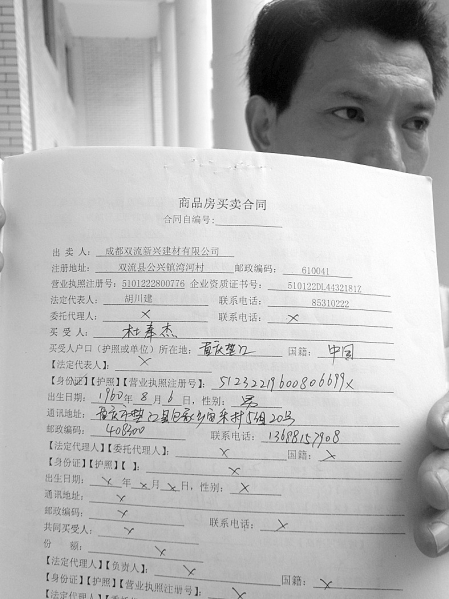 商品房买卖合同
合同自编号:
出 卖 人: 成都双流新兴建材有限公司
注册地址: 双流县公兴镇湾河村 邮政编码: 610041
营业执照注册号: 5101222800776 企业资质证书号: 510122DL4432181Z
法定代表人: 胡川建 联系电话: 85310222
委托代理人: × 联系电话: ×
买 受 人: 杜奉杰
买受人户口(护照或单位)所在地: 重庆垫江 国籍: 中国
【法定代表人】: ×
【身份证】【护照】【营业执照注册号】: 51232219600806699x
出生日期: 1960 年 8 月 6 日, 性别: 男
通讯地址: 重庆市垫江县 村5组20号
邮政编码: 408300 联系电话: 13698157908
【法定代理人】【委托代理人】: × 国籍: ×
【身份证】【护照】【 】: ×
出生日期: × 年 × 月 × 日, 性别: ×
通讯地址: ×
邮政编码: × 联系电话: ×
共同买受人: ×
份 额: ×
【法定代理人】【负责人】: × 国籍: ×
【身份证】【护照】【营业执照注册号】: ×